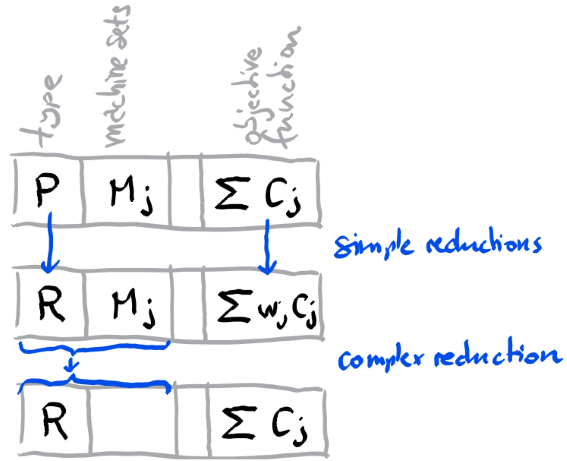 type machine sets objective function
P M_j ∑ C_j
simple reductions
R M_j ∑ w_j C_j
complex reduction
R ∑ C_j